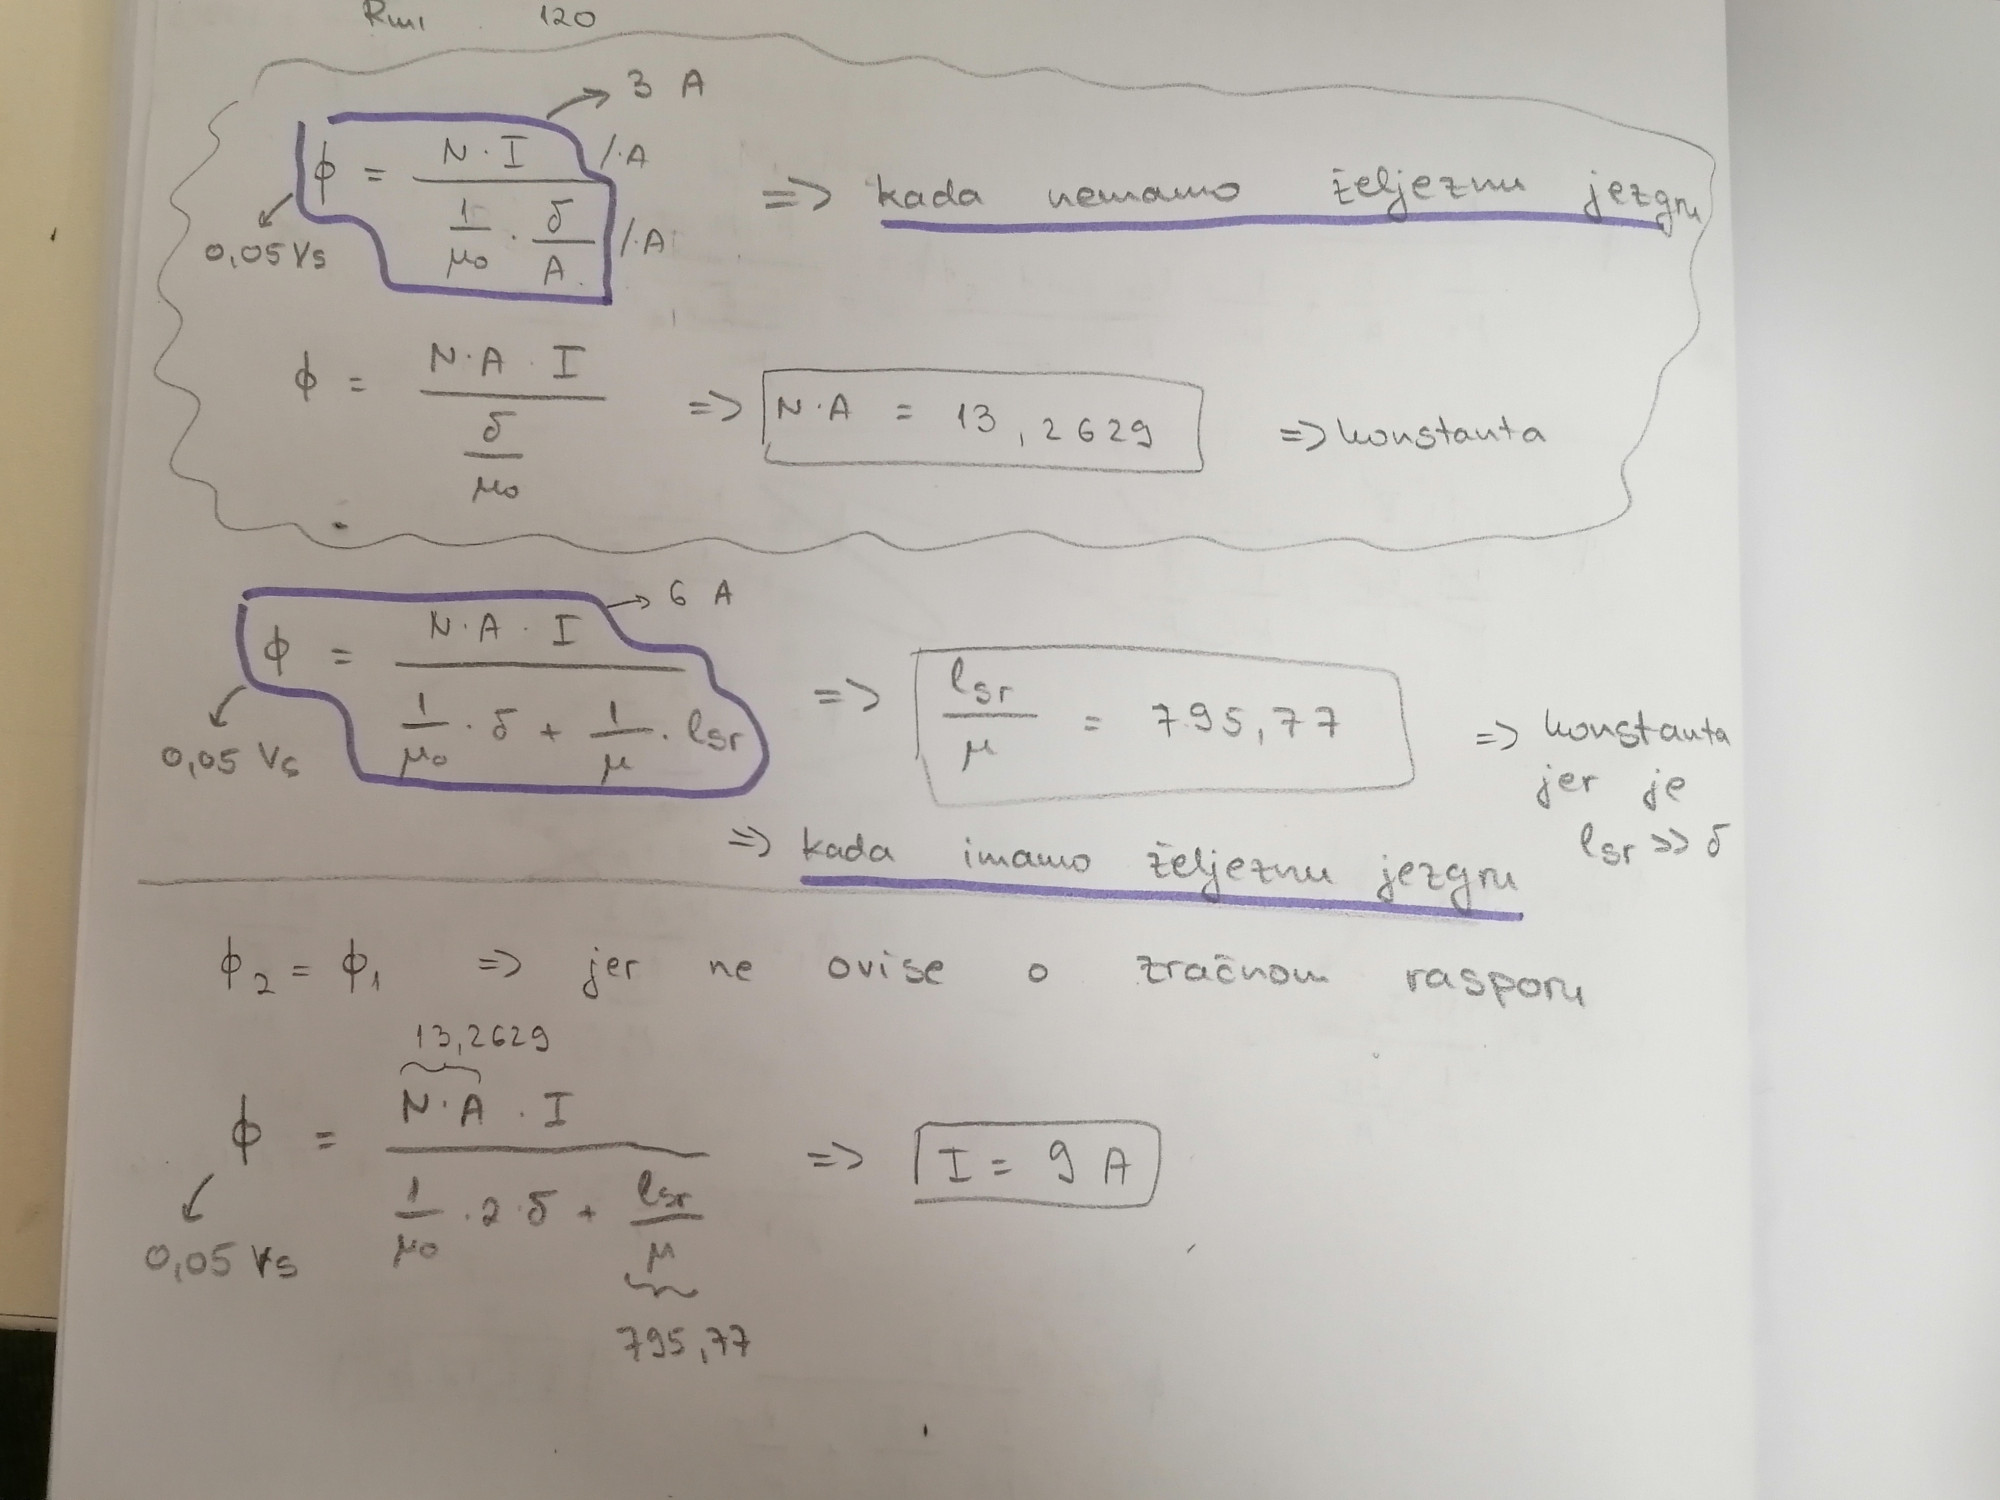 Rm1 120
3 A
ϕ = N·I / (1/μ0 · δ/A) /·A /·A => kada nemamo željeznu jezgru
0,05 Vs
ϕ = N·A·I / (δ/μ0) => N·A = 13,2629 => konstanta
6 A
ϕ = N·A·I / (1/μ0 · δ + 1/μ · lsr) => lsr/μ = 795,77 => konstanta
jer je
lsr >> δ
0,05 Vs
=> kada imamo željeznu jezgru
ϕ2 = ϕ1 => jer ne ovise o zračnom rasporu
13,2629
ϕ = N·A·I / (1/μ0 · 2·δ + lsr/μ) => I = 9 A
0,05 Vs
795,77